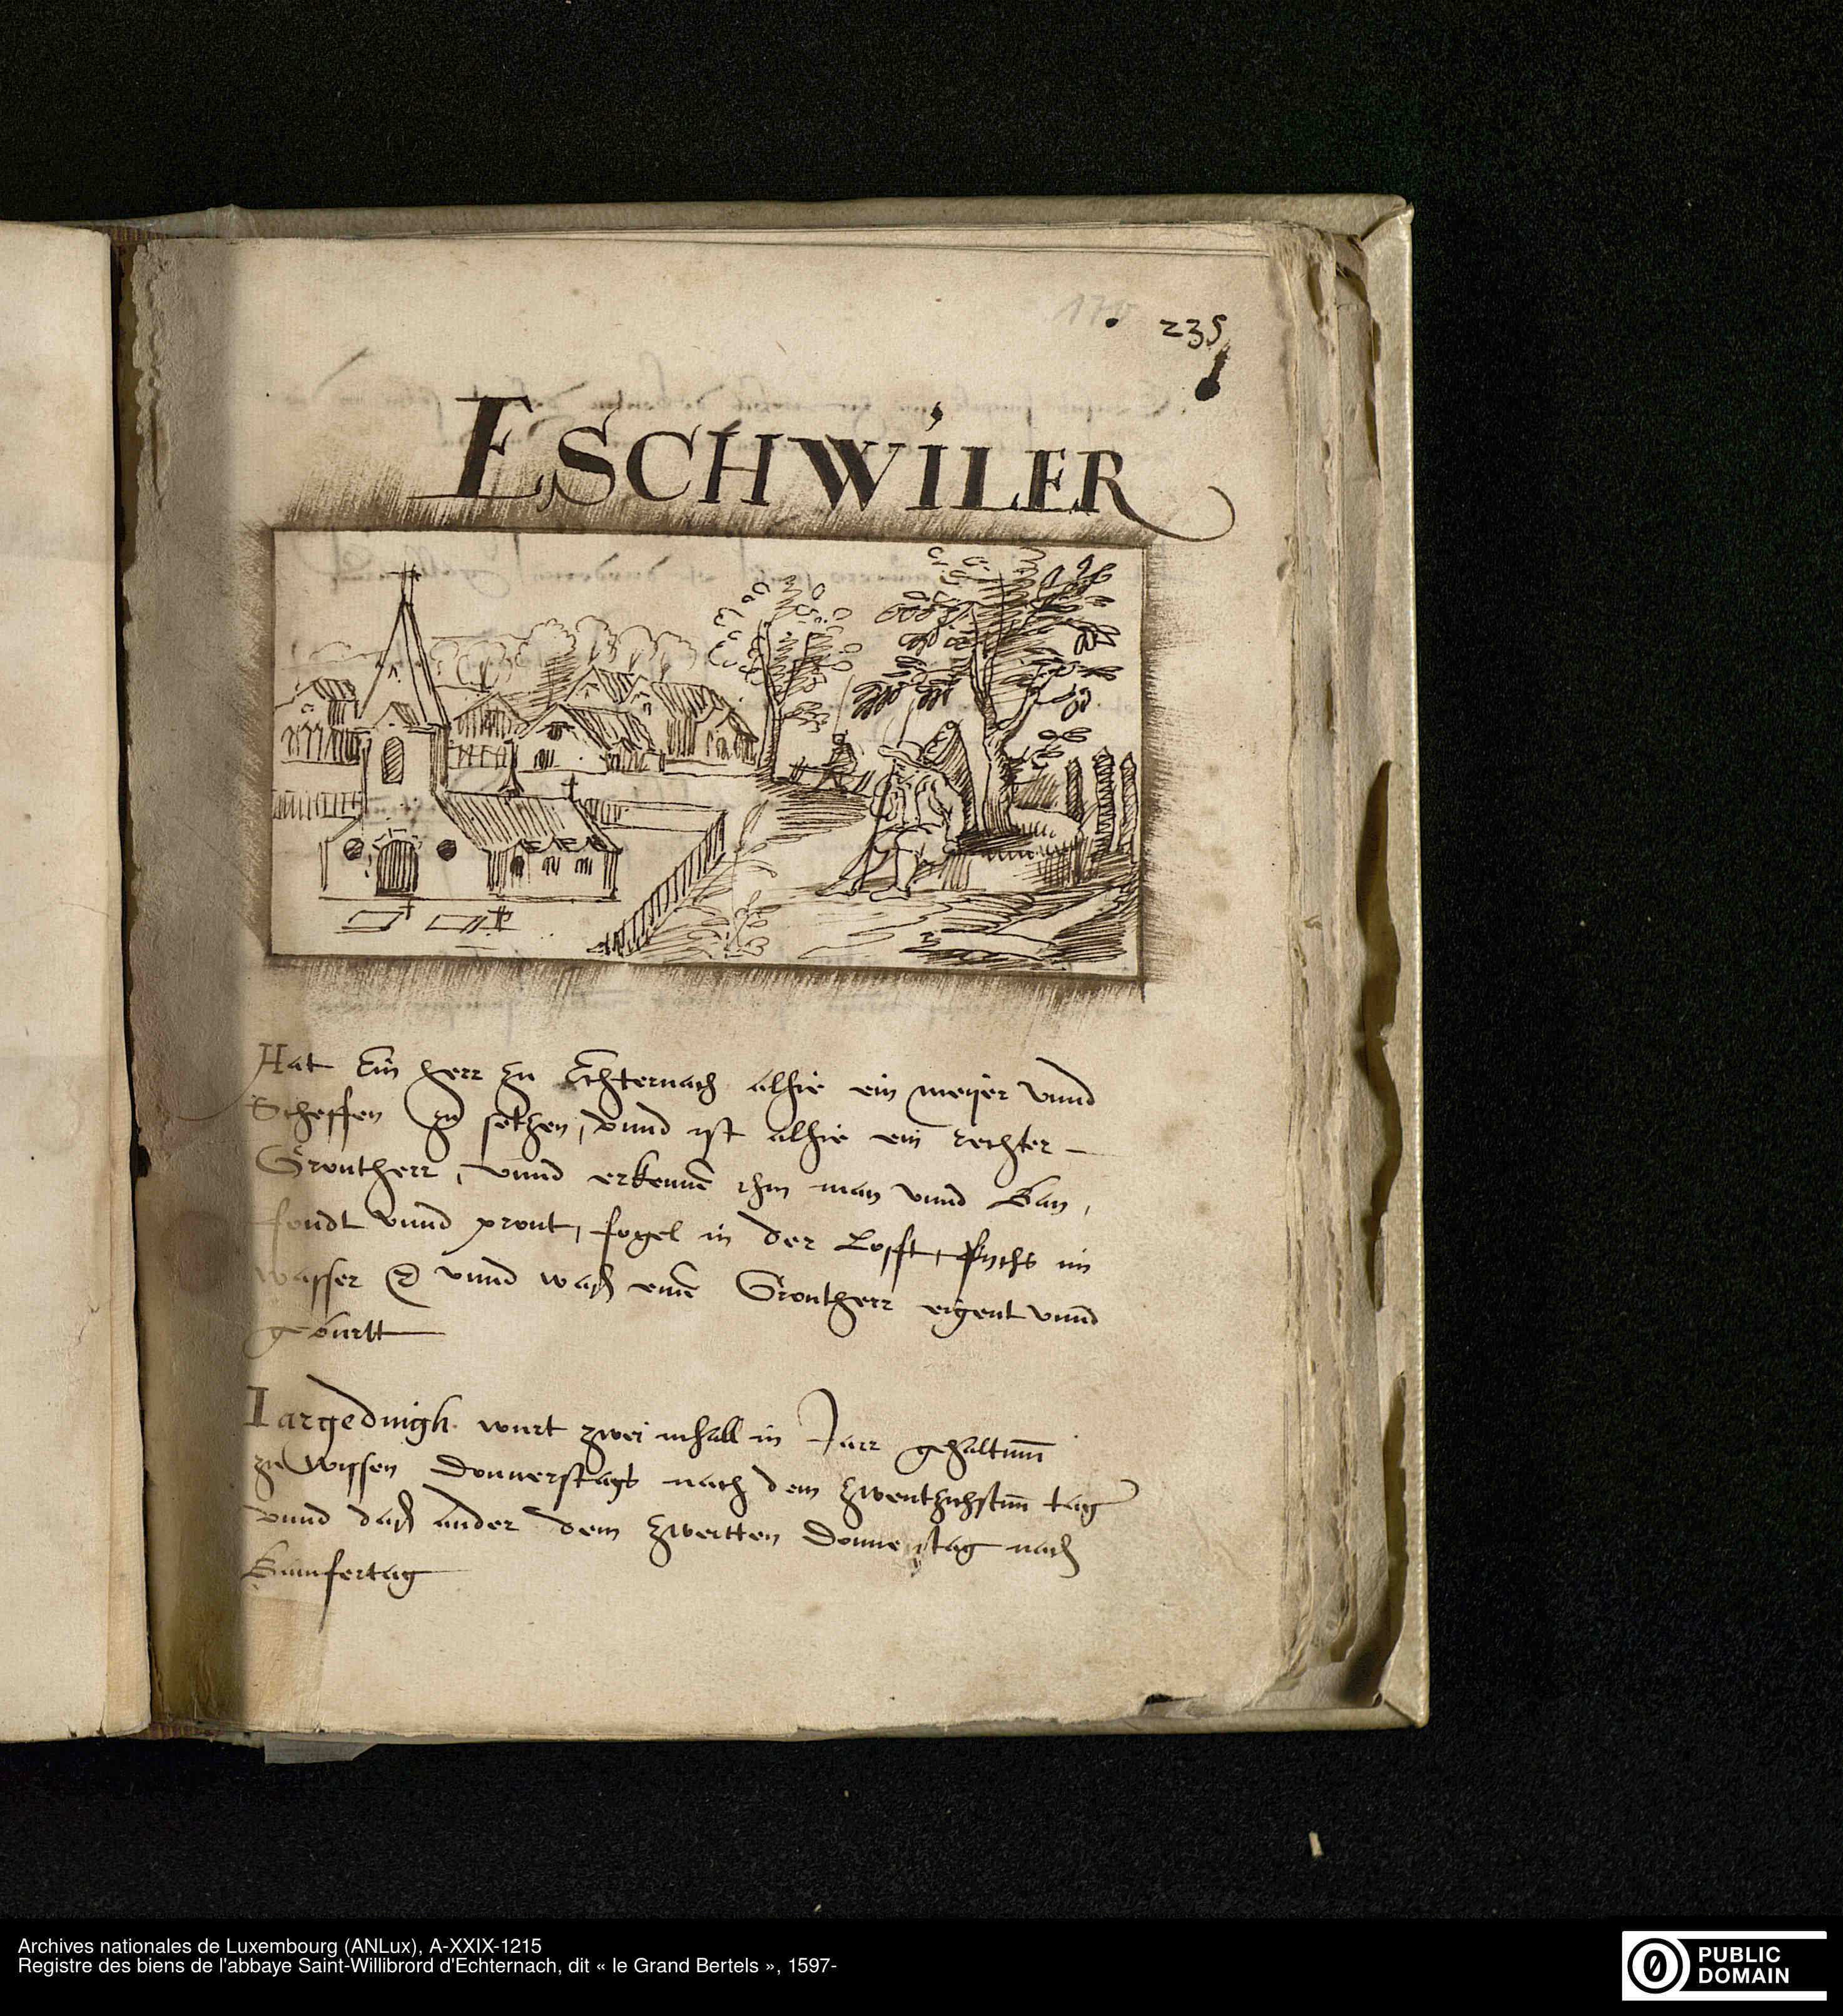 235
ESCHWILER
Hat Ein herr zu Echternach alhie ein meyer vnnd
Scheffen zu setzen, vnnd ist alhie ein rechter
Grontherr, vnnd erkennē ihm man vnnd Ban,
fondt vnnd pront, fogel in der Lofft, fychs im
wasser & vnnd waß einē Grontherr eigent vnnd
geburtt
Jargedingh wurt zwei mhall in Jarr gehaltenn
zu wissen Donnerstags nach dem zwentzichstenn tag
vnnd daß ander dem zweitten Donnerstag nach
Archives nationales de Luxembourg (ANLux), A-XXIX-1215
Registre des biens de l'abbaye Saint-Willibrord d'Echternach, dit « le Grand Bertels », 1597-
PUBLIC
DOMAIN